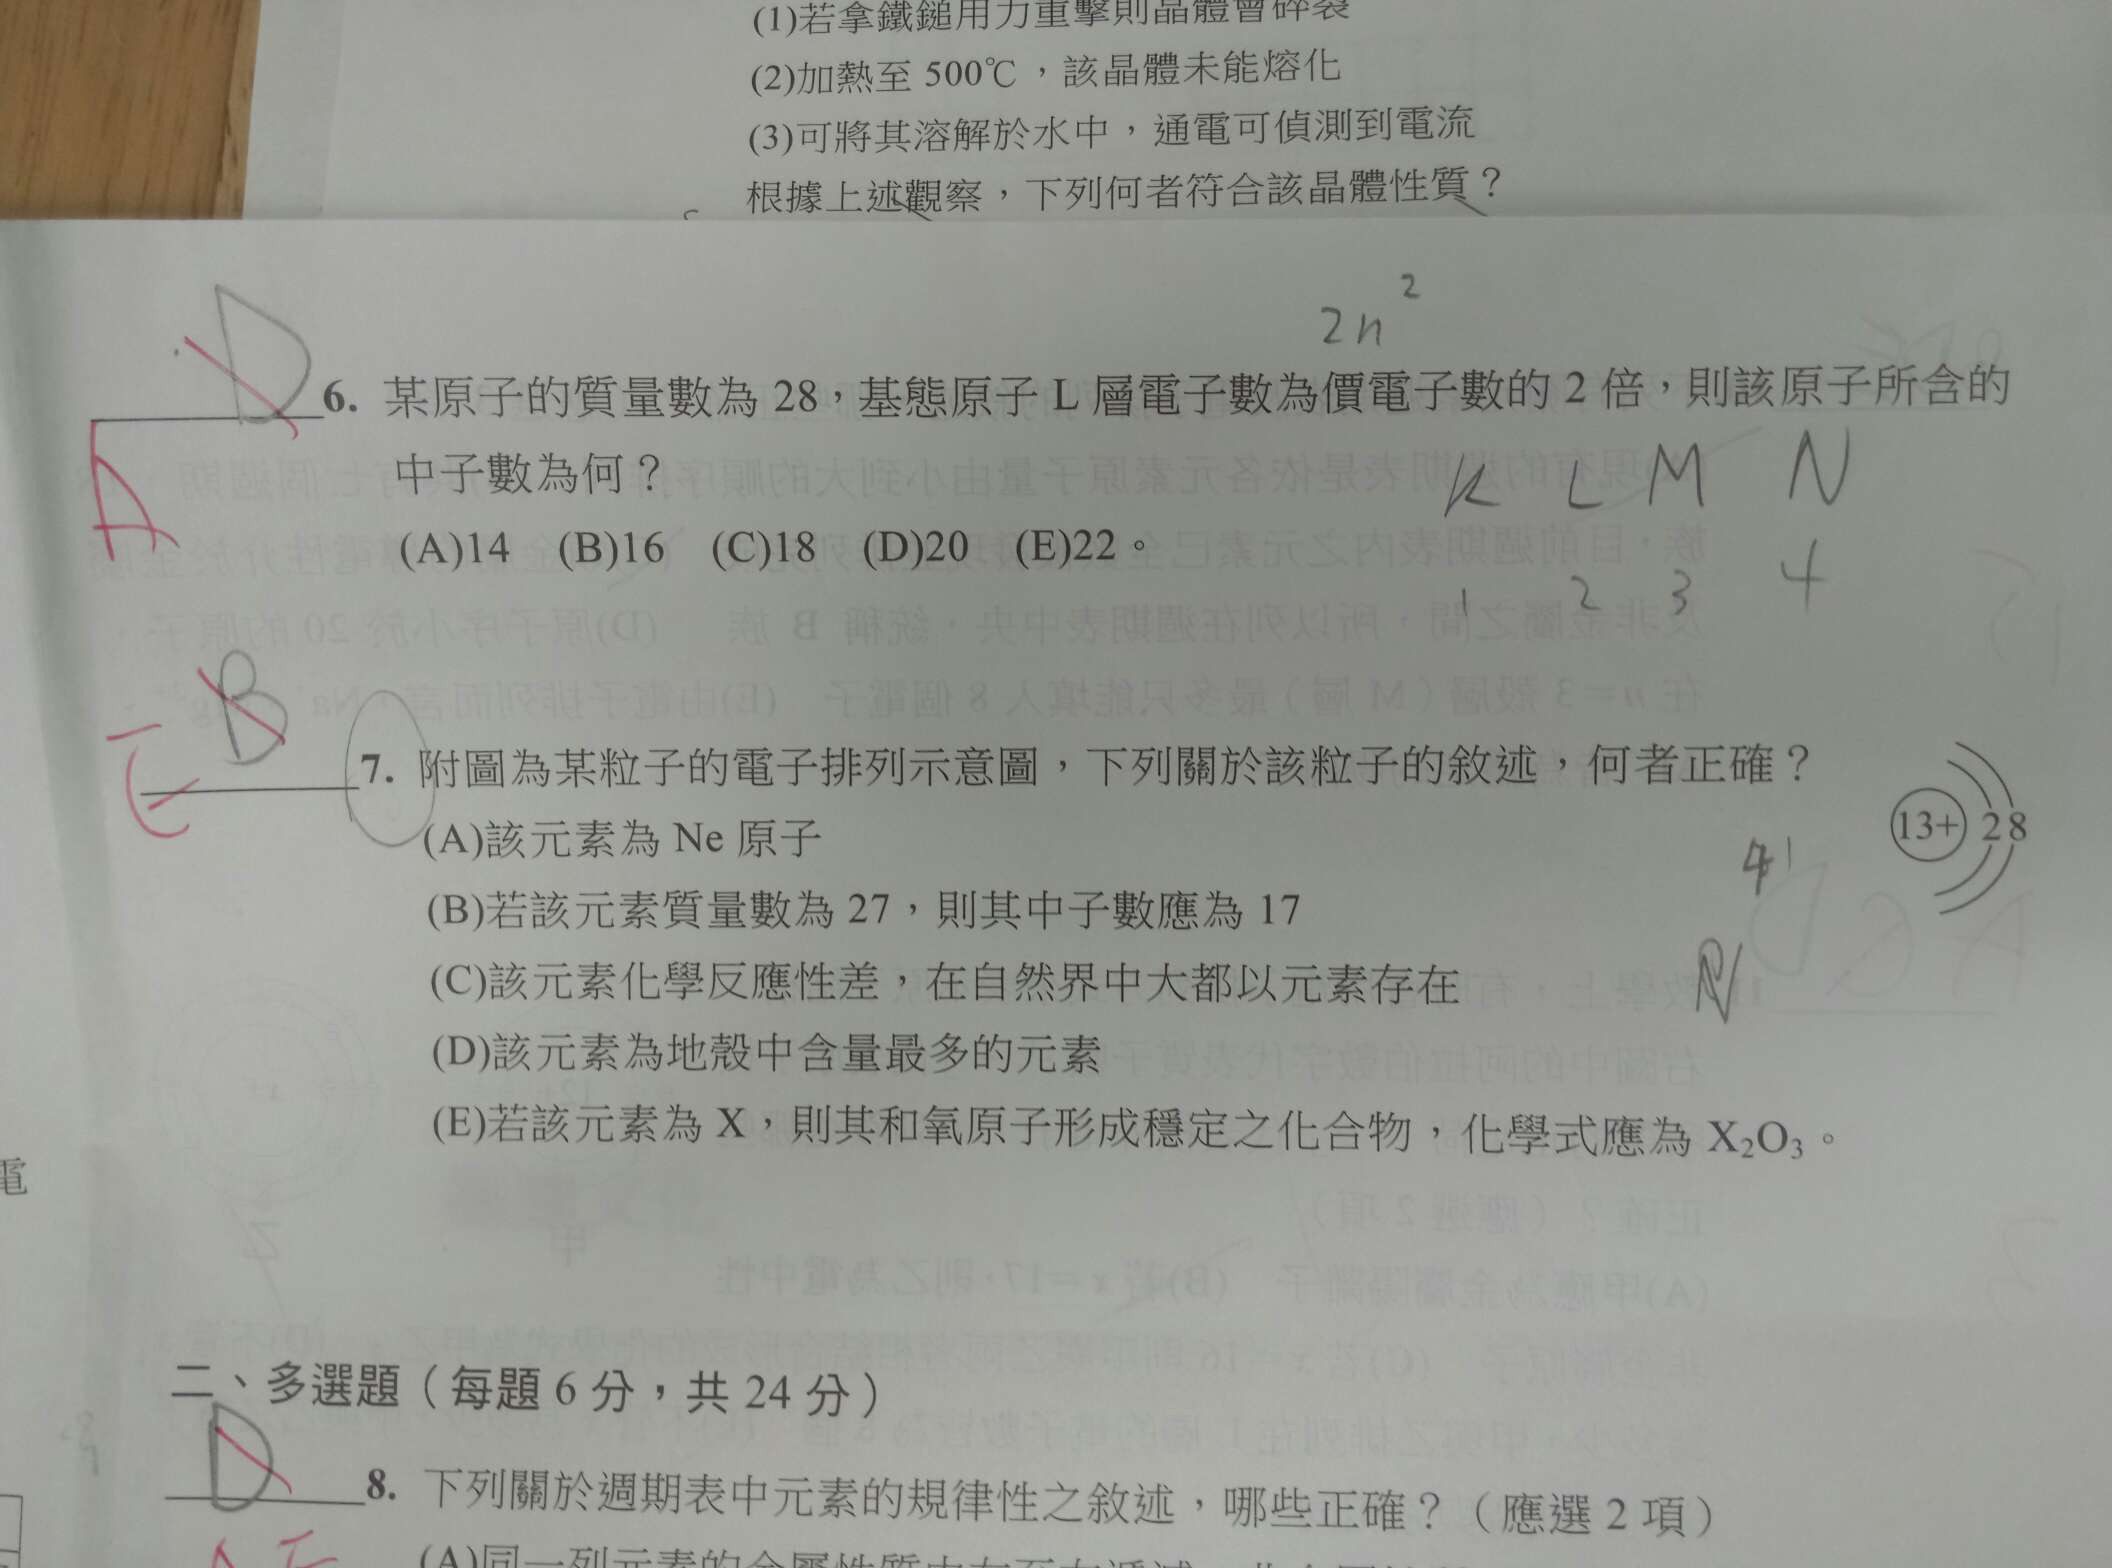 (1)若拿鐵鎚用力重擊則晶體會碎裂
(2)加熱至 500℃，該晶體未能熔化
(3)可將其溶解於水中，通電可偵測到電流
根據上述觀察，下列何者符合該晶體性質？
2n²
D
A
6. 某原子的質量數為 28，基態原子 L 層電子數為價電子數的 2 倍，則該原子所含的
中子數為何？
K L M N
(A)14 (B)16 (C)18 (D)20 (E)22。
1 2 3 4
B
E
7. 附圖為某粒子的電子排列示意圖，下列關於該粒子的敘述，何者正確？
13+ 2 8
(A)該元素為 Ne 原子
(B)若該元素質量數為 27，則其中子數應為 17
(C)該元素化學反應性差，在自然界中大都以元素存在
(D)該元素為地殼中含量最多的元素
(E)若該元素為 X，則其和氧原子形成穩定之化合物，化學式應為 X₂O₃。
電
二、多選題（每題 6 分，共 24 分）
D
8. 下列關於週期表中元素的規律性之敘述，哪些正確？（應選 2 項）
(A)同一列元素的金屬性質由左至右遞減